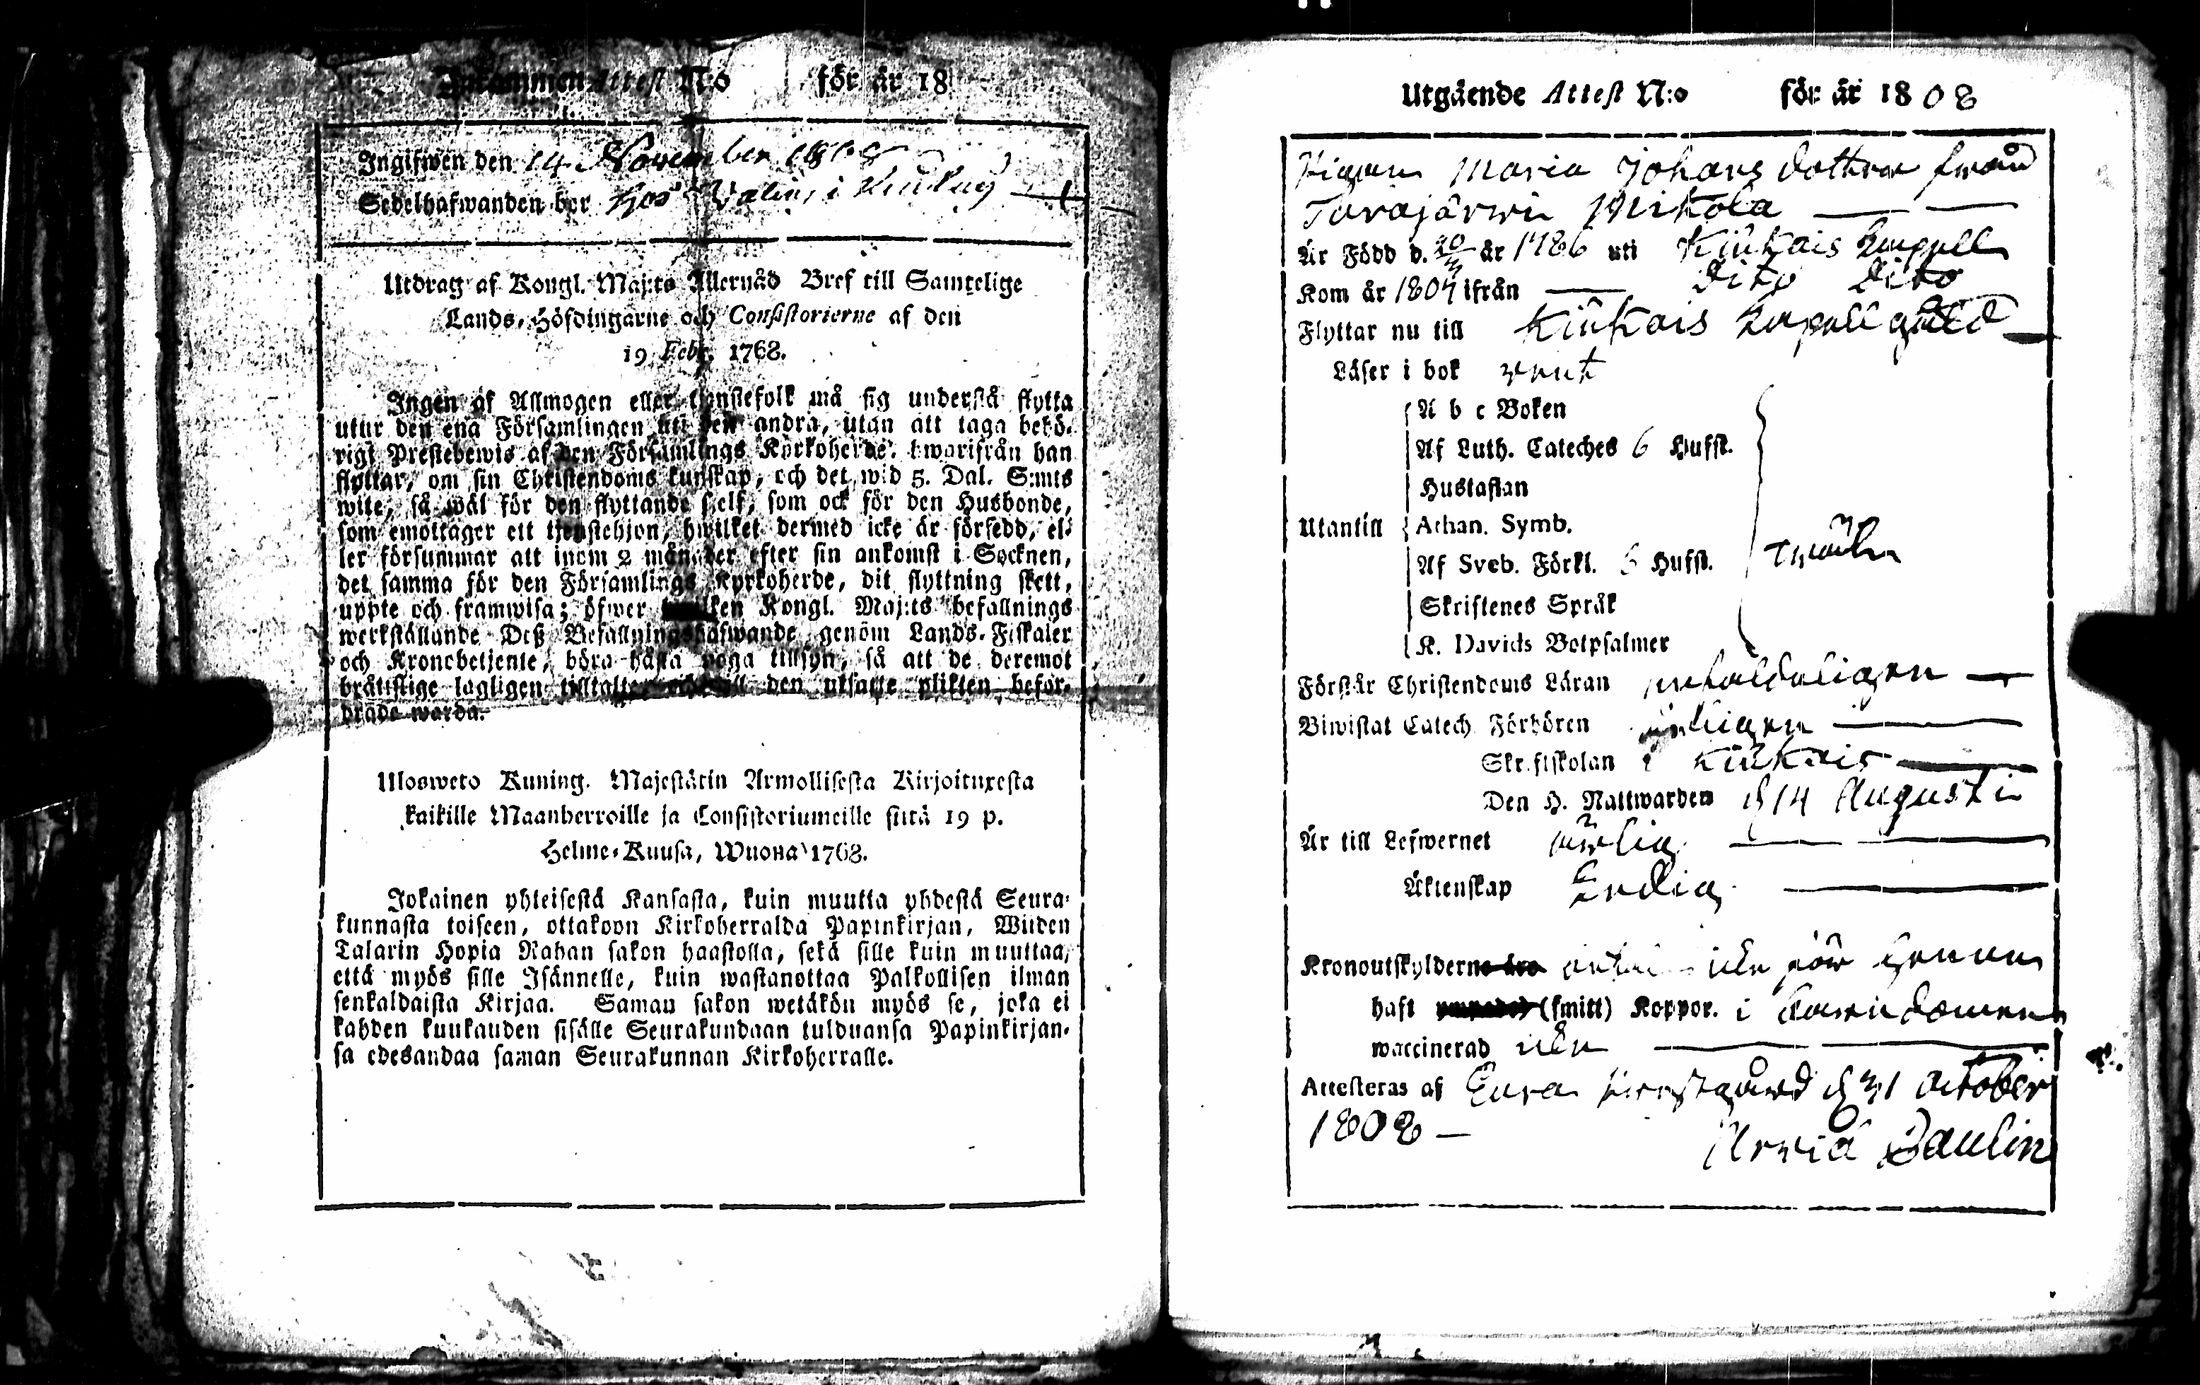 Inkommen Attest N:o för år 18
Ingifwen den 14 November 1808
Sedelhafwanden bor hos i
Utdrag af Kongl. Maj:ts Allernåd Bref till Samtelige
Lands-Höfdingarne och Consistorierne af den
19 Febr. 1768.
Ingen af Allmogen eller tjenstefolk må sig understå flytta
utur den ena Församlingen uti den andra, utan att taga behö-
rigt Prestebewis af den Församlings Kyrkoherde, hwarifrån han
flyttar, om sin Christendoms kunskap, och det wid 5. Dal. S:mts
wite, så wäl för den flyttande sjelf, som ock för den Husbonde,
som emottager ett tjenstehjon, hwilket dermed icke är försedd, el-
ler försummar att inom 2 månader efter sin ankomst i Socknen,
det samma för den Församlings Kyrkoherde, dit flyttning skett,
uppte och framwisa; öfwer hwilken Kongl. Maj:ts befallnings
werkställande Deß Befallningshafwande genom Lands-Fiskaler
och Kronobetjente, böra hafwa noga tillsyn, så att de deremot
bråttslige lagligen tilltalte och till den utsatte plikten beför-
drade warda.
Ulosweto Kuning. Majestätin Armollisesta Kirjoituxesta
kaikille Maanherroille ja Consistoriumeille siitä 19 p.
Helme-Kuusa, Wuona 1768.
Jokainen yhteisestä Kansasta, kuin muutta yhdestä Seura-
kunnasta toiseen, ottakoon Kirkoherralda Papinkirjan, Wiiden
Talarin Hopia Rahan sakon haastolla, sekä sille kuin muuttaa,
että myös sille Isännelle, kuin wastanottaa Palkollisen ilman
senkaldaista Kirjaa. Saman sakon wetäkön myös se, joka ei
kahden kuukauden sisälle Seurakundaan tulduansa Papinkirjan-
sa edesandaa saman Seurakunnan Kirkoherralle.
Utgående Attest N:o för år 1808
Pigan Maria Johans dotter från
Turajärwi Mikola
Är Född d. år 1786 uti Kiukais kapell
Kom år 1807 ifrån dito dito
Flyttar nu till Kiukais kapell gäld
Läser i bok rent
A b c Boken
Af Luth. Cateches 6 Hufst.
Hustaflan
Utantill Athan. Symb.
Af Sveb. Förkl. 6 Hufst.
Skriftenes Språk
K. Davids Botpsalmer
Förstår Christendoms Läran enfaldeligen
Biwistat Catech. Förhören
Skriftskolan i Kiukais
Den H. Nattwarden d 14 Augusti
Är till Lefwernet ärlig
Äktenskap Ledig
Kronoutskylderne icke för henne
haft (smitt) Koppor. i barndomen
waccinerad icke
Attesteras af Eura Prestgård d 31 October
1808
Arvid Paulin